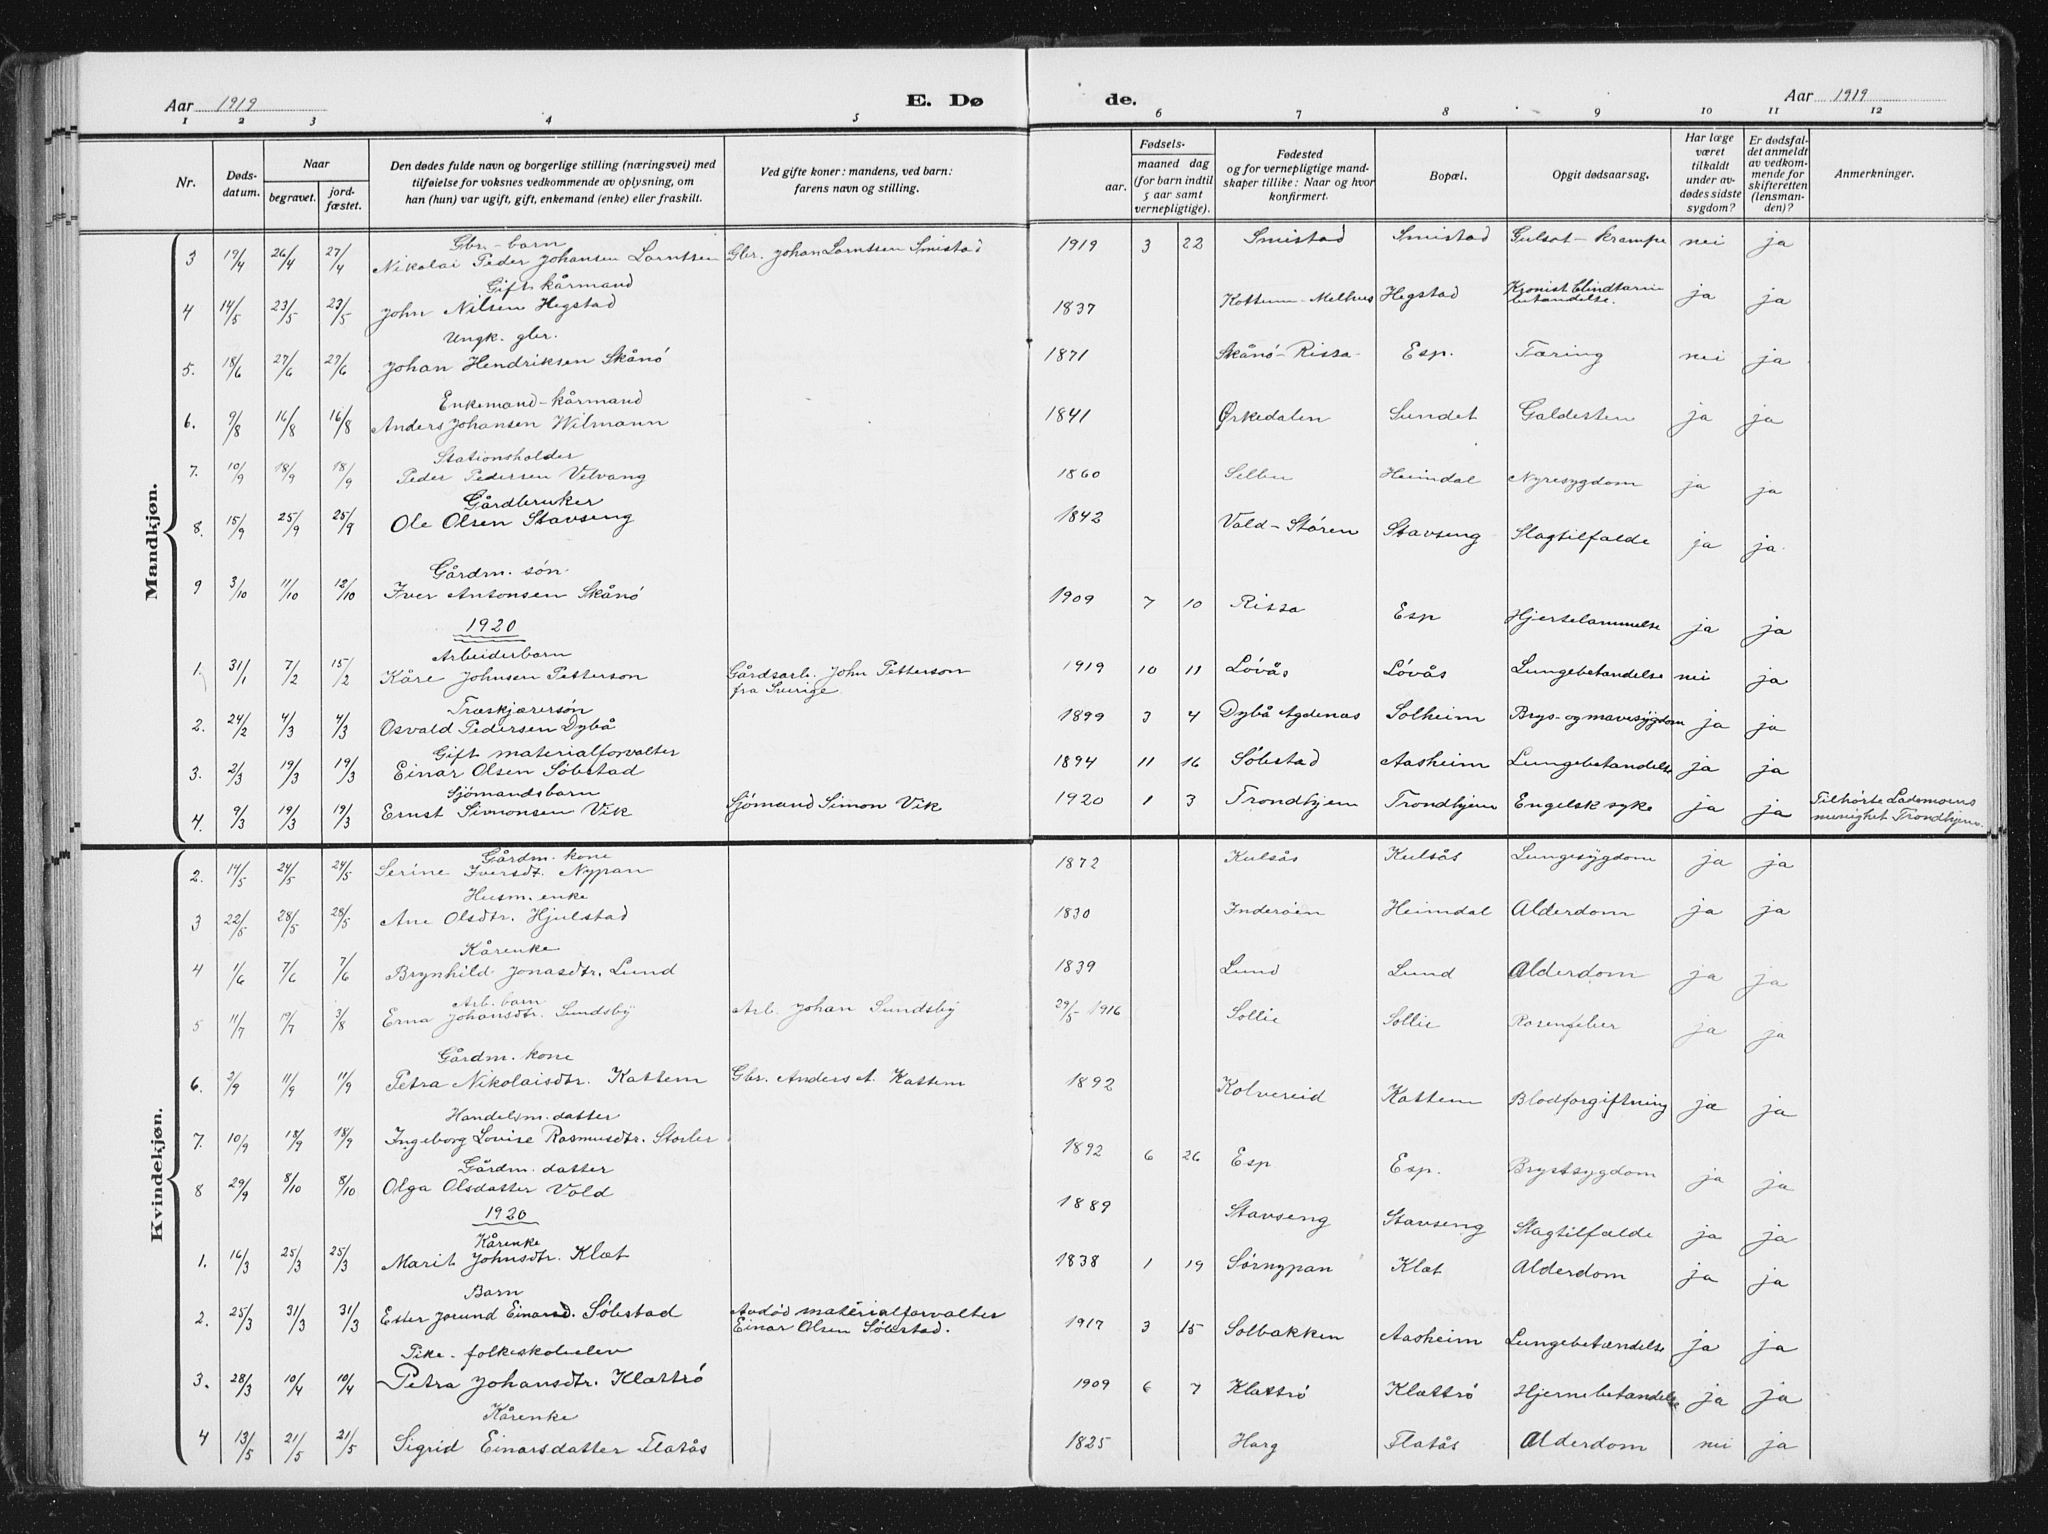 Aar 1919 E. Dø de. Aar 1919
1 2 3 4 5 6 7 8 9 10 11 12
Nr. Døds-datum. Naar begravet. jord-fæstet. Den dødes fulde navn og borgerlige stilling (næringsvei) med tilføielse for voksnes vedkommende av oplysning, om han (hun) var ugift, gift, enkemand (enke) eller fraskilt. Ved gifte koner: mandens, ved barn: farens navn og stilling. Fødsels- aar. maaned dag (for barn indtil 5 aar samt vernepligtige). Fødested og for vernepligtige mand-skaper tillike: Naar og hvor konfirmert. Bopæl. Opgit dødsaarsag. Har læge været tilkaldt under av-dødes sidste sygdom? Er dødsfal-det anmeldt av vedkom-mende for skifteretten (lensman-den)? Anmerkninger.
Mandkjøn.
Gbr.-barn
3 19/4 26/4 27/4 Nikolai Peder Johansen Lorntsen Gbr. Johan Lorntsen Smistad 1919 3 22 Smistad Smistad Gulsot-krampe nei ja
Gift kårmand
4 14/5 23/5 23/5 John Nilsen Hegstad 1837 Kottum-Melhus Hegstad Kronisk blindtarm betændelse. ja ja
Ungk. gbr.
5. 18/6 27/6 27/6 Johan Hendriksen Skånø 1871 Skånø-Rissa Esp. Tæring nei ja
Enkemand-kårmand
6. 9/8 16/8 16/8 Anders Johansen Wilmann 1841 Ørkedalen Sundet Galdesten ja ja
Stationsholder
7. 10/9 18/9 18/9 Peder Pedersen Velvang 1860 Selbu Heimdal Nyresygdom ja ja
Gårdbruker
8. 15/9 25/9 25/9 Ole Olsen Stavseng 1842 Vold-Støren Stavseng Slagtilfælde ja ja.
Gårdm. søn.
9 3/10 11/10 12/10 Iver Antonsen Skånø 1909 7 10 Rissa Esp Hjertelammelse ja ja
1920
Arbeiderbarn
1. 31/1 7/2 15/2 Kåre Johnsen Petterson Gårdsarb. John Petterson fra Sverige 1919 10 11 Løvås Løvås Lungebetandelse nei ja
Træskjærersøn
2. 24/2 4/3 4/3 Osvald Pedersen Dybå 1899 3 4 Dybå Agdenæs Solheim Brys- og mavesygdom ja ja
Gift materialforvalter
3. 2/3 19/3 19/3 Einar Olsen Søbstad 1894 11 16 Søbstad Aasheim Lungebetandelse ja ja
Sjømandsbarn
4. 9/3 19/3 19/3 Ernst Simonsen Vik Sjømand Simon Vik 1920 1 3 Trondhjem Trondhjem Engelsk syke ja ja Tilhørte Lademoens menighet Trondhjem.
Kvindekjøn.
Gårdm. kone
2. 14/5 24/5 24/5 Serine Iversdt. Nypan 1872 Kulsås Kulsås Lungesygdom ja ja
Husm. enke
3 22/5 28/5 28/5 Ane Olsdtr. Hjulstad 1830 Inderøen Heimdal Alderdom ja ja
Kårenke
4 1/6 7/6 7/6 Brynhild Jonasdtr. Lund 1839 Lund Lund Alderdom ja ja
Arb. barn
5 11/7 19/7 3/8 Erna Johansdtr. Sundsby Arb. Johan Sundsby 29/5-1916 Sollie Sollie Rosenfeber ja ja
Gårdm. kone
6. 2/9 11/9 11/9 Petra Nikolaisdtr. Kattem Gbr. Anders A. Kattem 1892 Kolvereid Kattem Blodforgiftning ja ja
Handelsm. datter
7. 10/9 18/9 18/9 Ingeborg Lovise Rasmusdtr. Storler 1892 6 26 Esp Esp. Brystsygdom ja ja
Gårdm. datter
8 29/9 8/10 8/10 Olga Olsdatter Vold 1889 Stavseng Stavseng Slagtilfælde ja ja
1920
Kårenke
1. 16/3 25/3 25/3 Marit Johnsdtr. Klæt 1838 1 19 Sørnypan Klæt Alderdom ja ja
Barn
2. 25/3 31/3 31/3 Ester Jorund Einarsd. Søbstad Avdød materialforvalter Einar Olsen Søbstad. 1917 3 15 Solbakken Aasheim Lungebetændelse ja ja
Pike-folkeskoleelev
3. 28/3 10/4 10/4 Petra Johansdtr. Klættrø 1909 6 7 Klættrø Klættrø Hjernebetandelse ja ja
Kårenke
4 13/5 21/5 21/5 Sigrid Einarsdatter Flatås 1825 Horg Flatås Alderdom nei ja